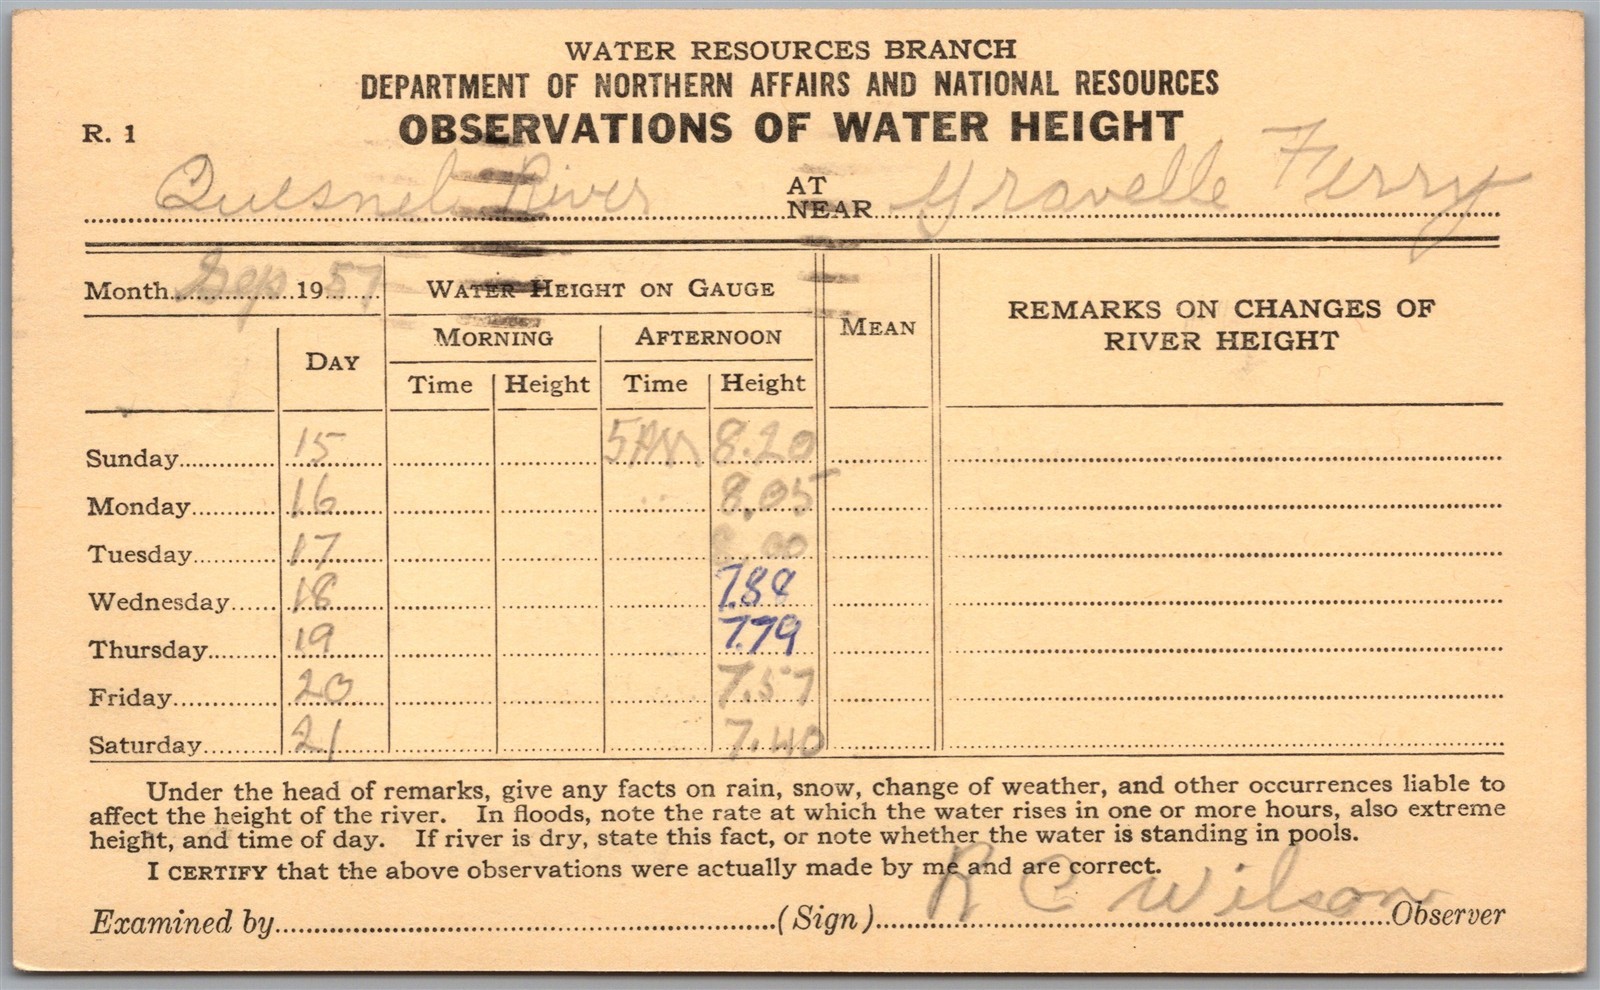 WATER RESOURCES BRANCH
DEPARTMENT OF NORTHERN AFFAIRS AND NATIONAL RESOURCES
R. 1 OBSERVATIONS OF WATER HEIGHT
Quesnel River AT NEAR Gravelle Ferry
Month Sep 1957 WATER HEIGHT ON GAUGE MEAN REMARKS ON CHANGES OF RIVER HEIGHT
DAY MORNING AFTERNOON
Time Height Time Height
Sunday 15 8.20
Monday 16 8.05
Tuesday 17 8.00
Wednesday 18 7.88
Thursday 19 7.79
Friday 20 7.57
Saturday 21 7.40
Under the head of remarks, give any facts on rain, snow, change of weather, and other occurrences liable to
affect the height of the river. In floods, note the rate at which the water rises in one or more hours, also extreme
height, and time of day. If river is dry, state this fact, or note whether the water is standing in pools.
I CERTIFY that the above observations were actually made by me and are correct.
Examined by (Sign) R C Wilson Observer